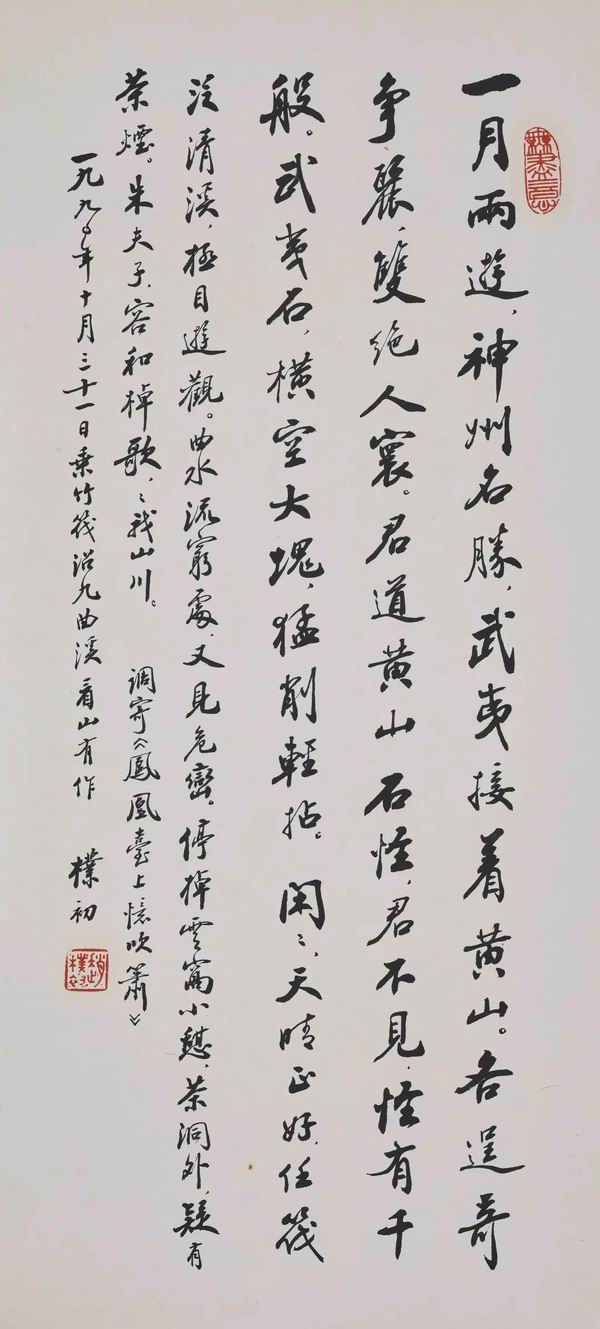 無盡意
一月兩遊，神州名勝，武夷接着黄山。各逞奇
争麗，雙绝人寰。君道黄山石怪，君不見，怪有千
般。武夷石，横空大塊，猛削輕拈。閑〻，天晴正好，任筏
泛清溪，極目遊觀。曲水流窮處，又見危巒。停棹雲窩小憩，茶洞外，疑有
茶煙。朱夫子，容和棹歌，〻我山川。 調寄《鳳凰臺上憶吹簫》
一九九〇年十月三十一日乘竹筏沿九曲溪看山有作 樸初
趙樸初